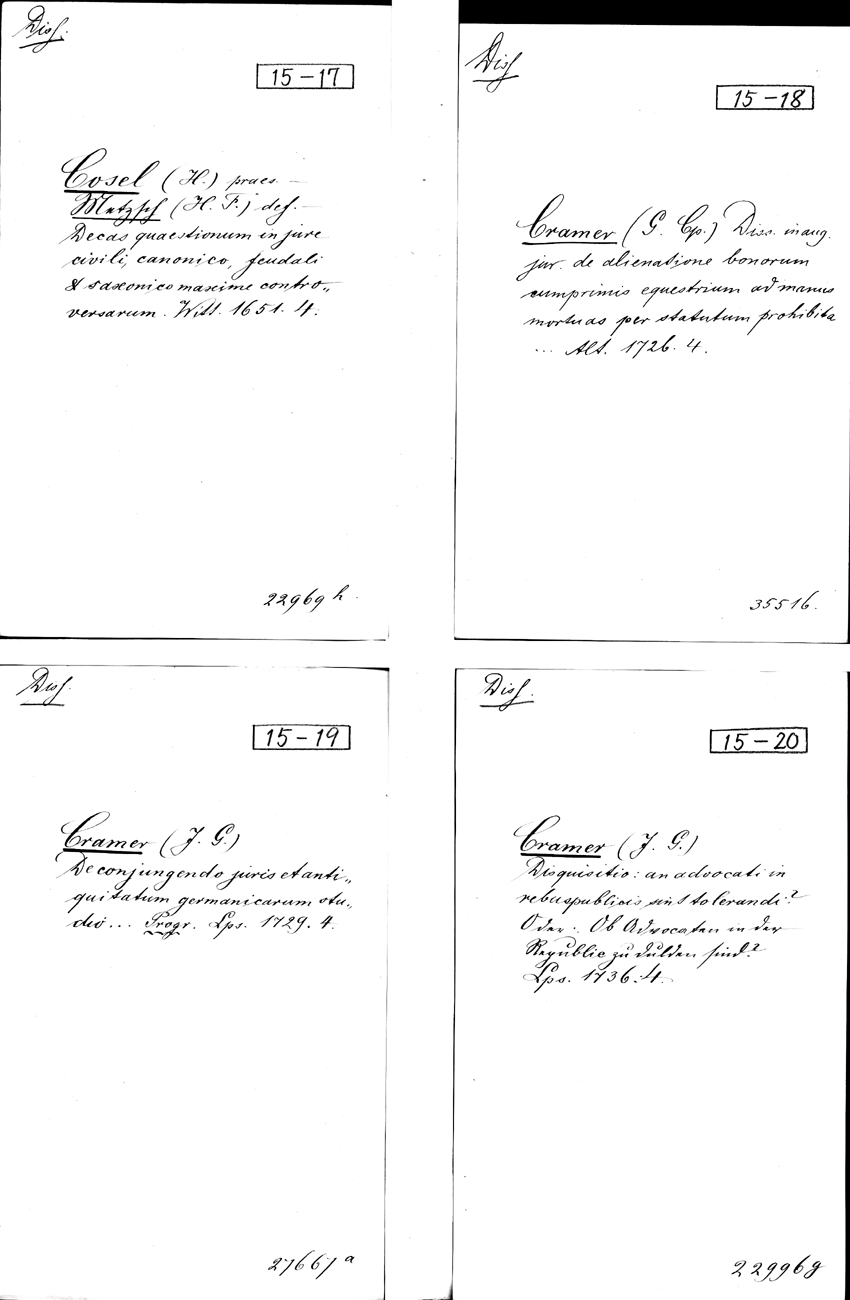 Diss.
15-17
Cosel (H.) praes. —
Metzsch (H. F.) def. —
Decas quaestionum in jure
civili, canonico, feudali
& saxonico maxime contro„
versarum. Witt. 1651. 4.
22969 h.
Diss
15-18
Cramer (G. Cp.) Diss. inaug.
jur. de alienatione bonorum
cumprimis equestrium ad manus
mortuas per statutum prohibita
... Alt. 1726. 4.
35516.
Diss.
15-19
Cramer (J. G.)
De conjungendo juris et anti„
quitatum germanicarum stu„
dio ... Progr. Lps. 1729. 4.
27667 a
Diss.
15-20
Cramer (J. G.)
Disquisitio: an advocati in
rebuspublicis sint tolerandi?
Oder: Ob Advocaten in der
Republic zu dulden sind?
Lps. 1736. 4.
22996 g